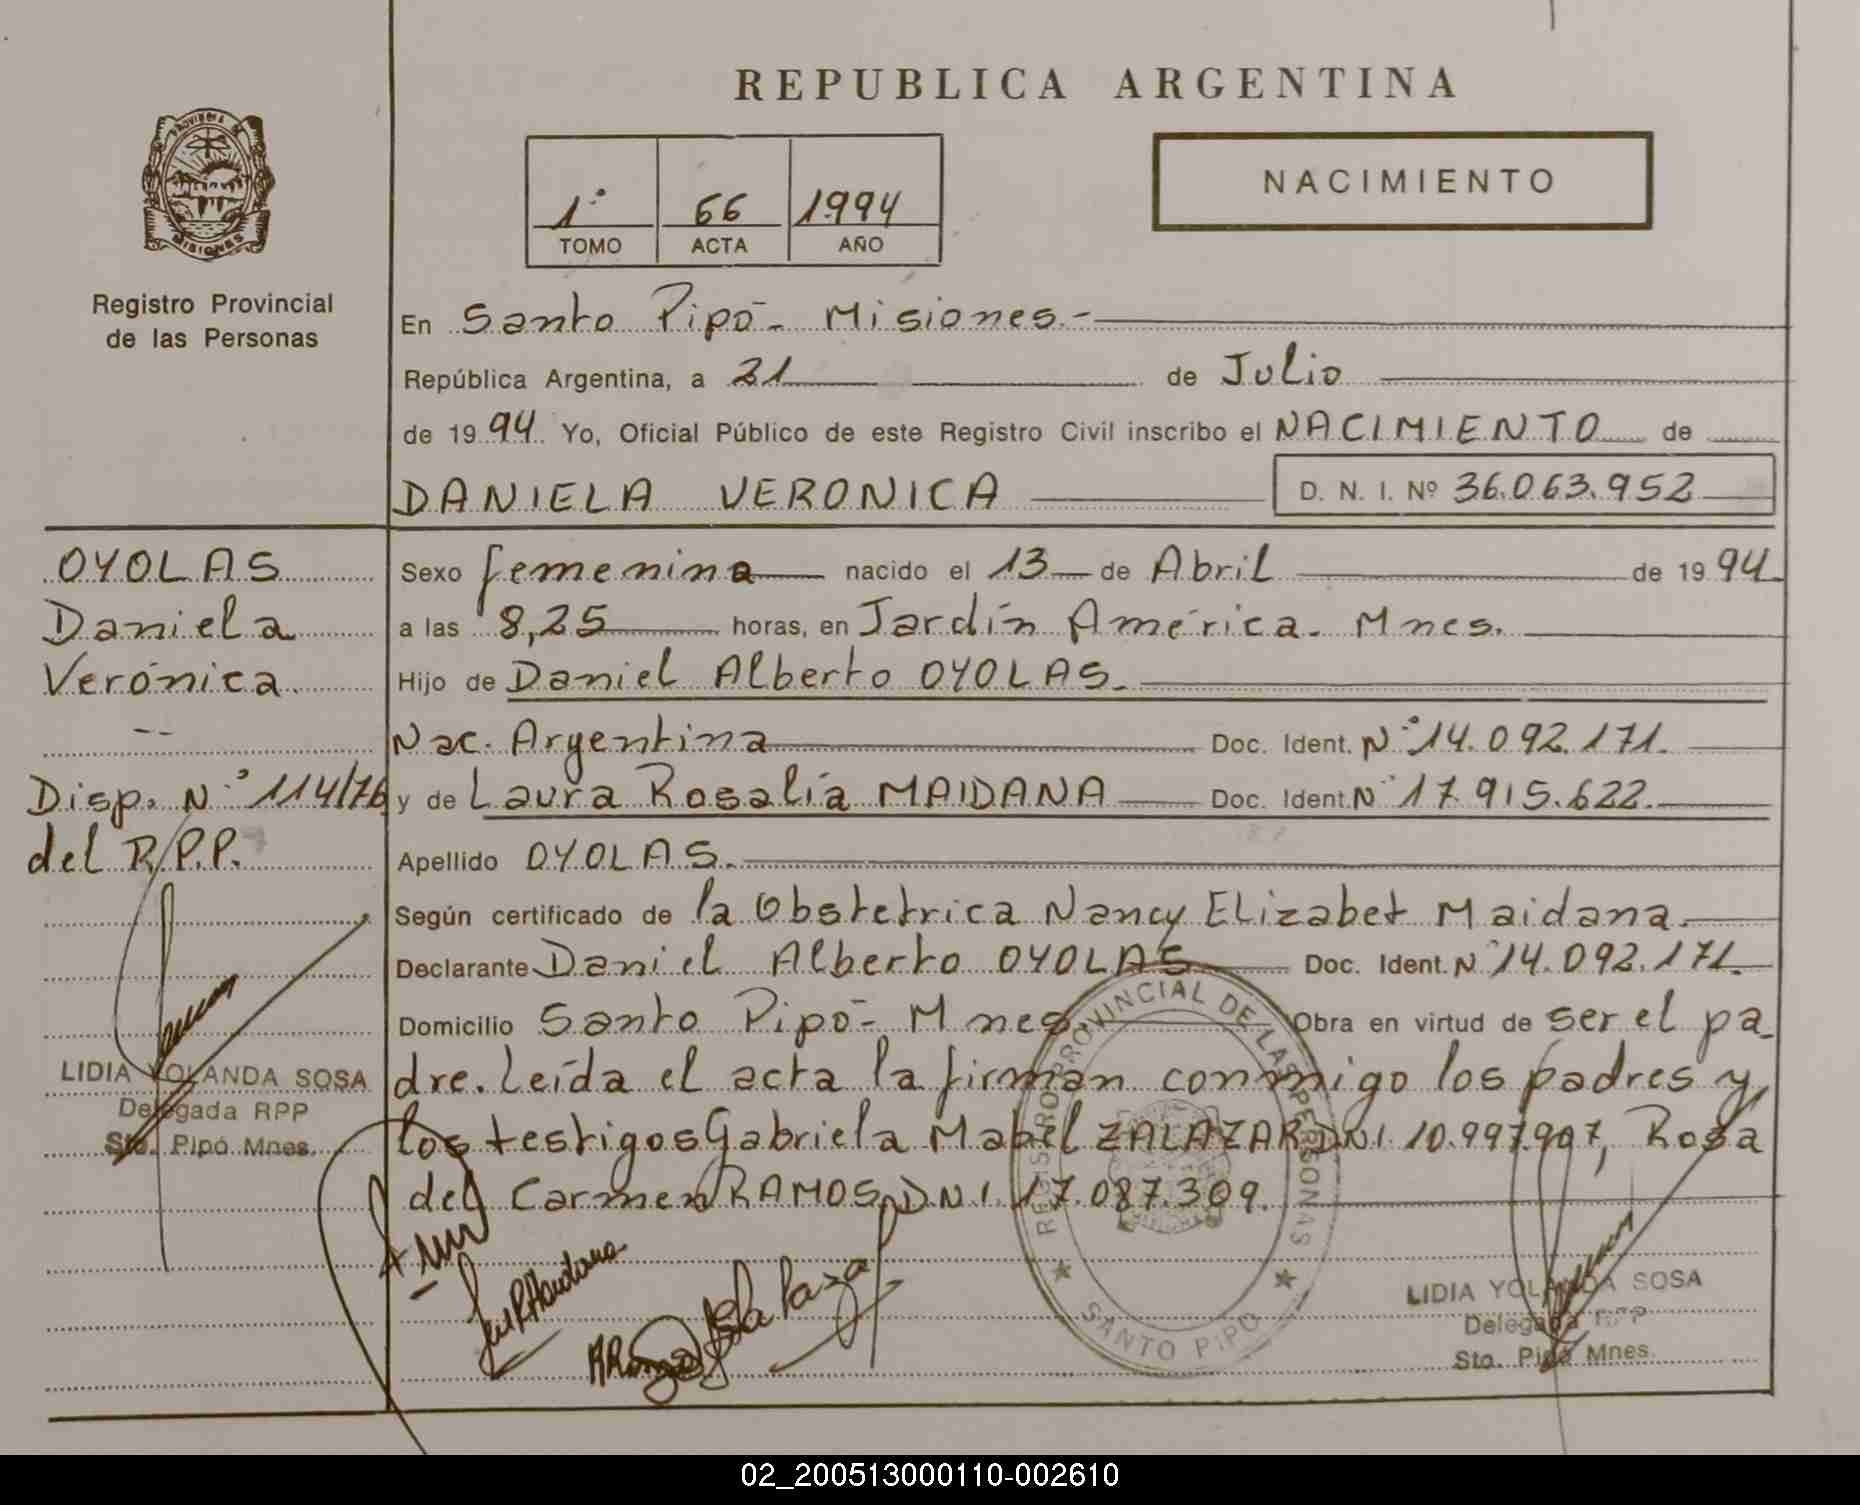 REPUBLICA ARGENTINA
PROVINCIA DE
MISIONES
Registro Provincial
de las Personas
1° 66 1994
TOMO ACTA AÑO
NACIMIENTO
En Santo Pipó - Misiones.-
República Argentina, a 21 de Julio
de 1994. Yo, Oficial Público de este Registro Civil inscribo el NACIMIENTO de
DANIELA VERONICA D. N. I. Nº 36.063.952
OYOLAS
Daniela
Verónica.
--
Disp. N° 114/76
del R.P.P.
LIDIA YOLANDA SOSA
Delegada RPP
Sto. Pipó Mnes.
Sexo femenina nacido el 13 de Abril de 1994.
a las 8,25 horas, en Jardín América. Mnes.
Hijo de Daniel Alberto OYOLAS.
Nac. Argentina Doc. Ident. N° 14.092.171.
y de Laura Rosalía MAIDANA Doc. Ident. N° 17.915.622.
Apellido OYOLAS.
Según certificado de la Obstetrica Nancy Elizabet Maidana.
Declarante Daniel Alberto OYOLAS Doc. Ident. N° 14.092.171.
Domicilio Santo Pipó - Mnes. Obra en virtud de ser el pa_
dre. Leída el acta la firman conmigo los padres y
los testigos Gabriela Mabel ZALAZAR DNI. 10.997.907, Rosa
del Carmen RAMOS DNI. 17.087.309.
REGISTRO PROVINCIAL DE LAS PERSONAS
SANTO PIPO
LIDIA YOLANDA SOSA
Delegada RPP
Sto. Pipó Mnes.
02_200513000110-002610